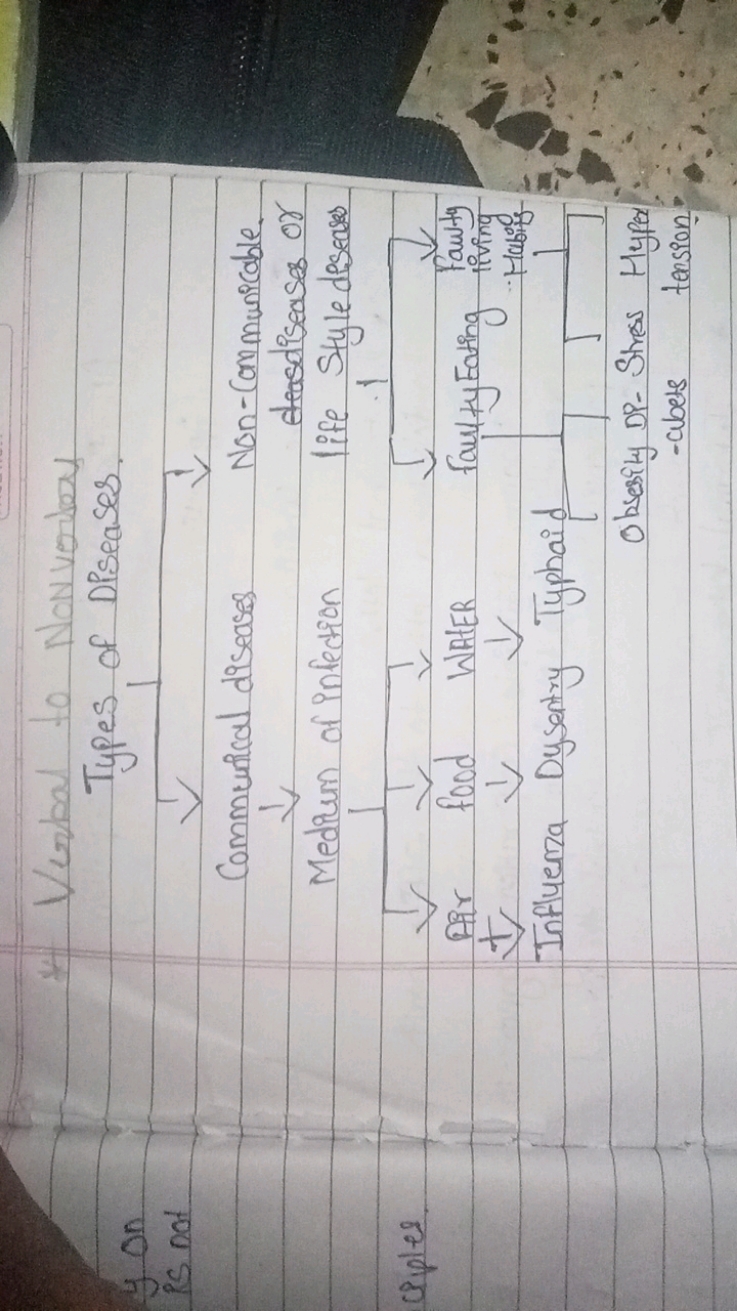 * Verbal to Nonverbal
Types of Diseases.
Communical diseases Non-Communicable
diseases or
Medium of infection life Style diseases
Air food WATER Faulty Eating Faulty
living
Habits
Influenza Dysentry Typhaid
Obsesity Di- Stress Hyper
-abets tension
y on
is not
ciples.